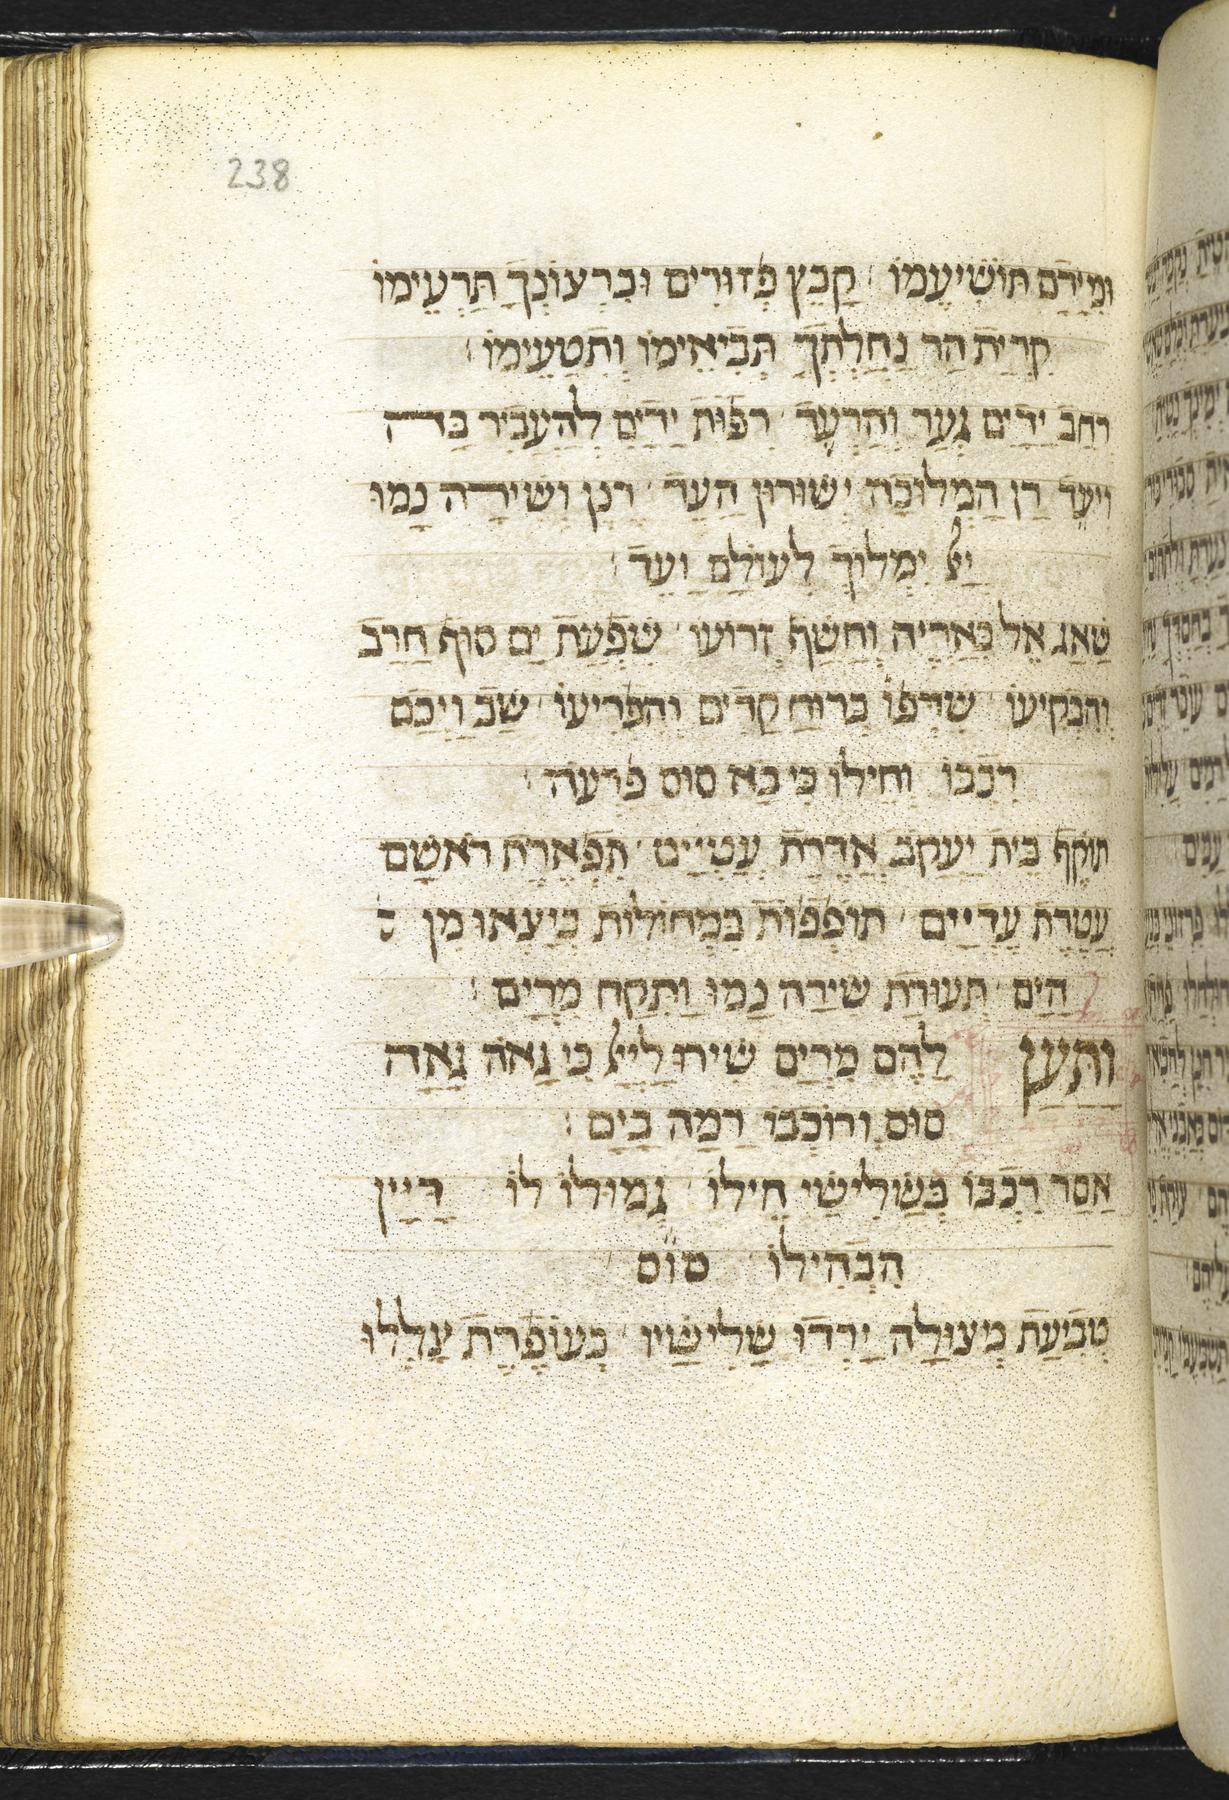 238
וּמִיָּדָם תּוֹשִׁיעֵמוֹ קַבֵּץ פְּזוּרִים וּבִרְצוֹנְךָ תַּרְעֵימוֹ
קִרְיַת הַר נַחֲלָתְךָ תְּבִיאֵימוֹ וְתִטָעֵימוֹ
רחב יָדַיִם גְּעַר וְהַרְעֵד רִפּוּת יָדַיִם לְהַעֲבִיר בַּד
וִיעַד רֹן הַמְלוּכָה יְשׁוּרוּן הַעַד רנן וְשִׁירָה נָמוּ
יְיָ יִמְלוֹךְ לְעוֹלָם וָעֶד
שָׁאַג אֵל כְּאַרְיֵה וְחָשַׂף זְרוֹעוֹ שִׁפְעַת יַם סוּף חָרַב
וְהִבְקִיעוֹ שִׁדְּפוֹ בְּרוּחַ קָדִים וְהִפְרִיעוֹ שָׁב וַיְכַס
רִכְבּוֹ וְחֵילוֹ כִּי בָא סוּס פַּרְעֹה
תּוֹקֶף בֵּית יַעֲקֹב אַדֶּרֶת עֲטוּיִים תִּפְאֶרֶת רֹאשָׁם
עֲטֶרֶת עֲדָיִים תּוֹפְפוֹת בִּמְחוֹלוֹת כְּיָצְאוּ מִן
הַיָּם תְּעוּדַת שִׁירָה נָמוּ וַתִּקַּח מִרְיָם
וַתַּעַן לָהֶם מִרְיָם שִׁירוּ לַייָ כִּי גָאֹה גָּאָה
סוּס וְרוֹכְבוֹ רָמָה בַיָּם
אָסַר רִכְבּוֹ בְּשָׁלִישֵׁי חֵילוֹ גְּמוּלוֹ לוֹ דַּיָּין
הִבְהִילוֹ סוּס
טְבִיעַת מְצוּלָה יָרְדוּ שָׁלִישָׁיו כְּעוֹפֶרֶת צָלְלוּ